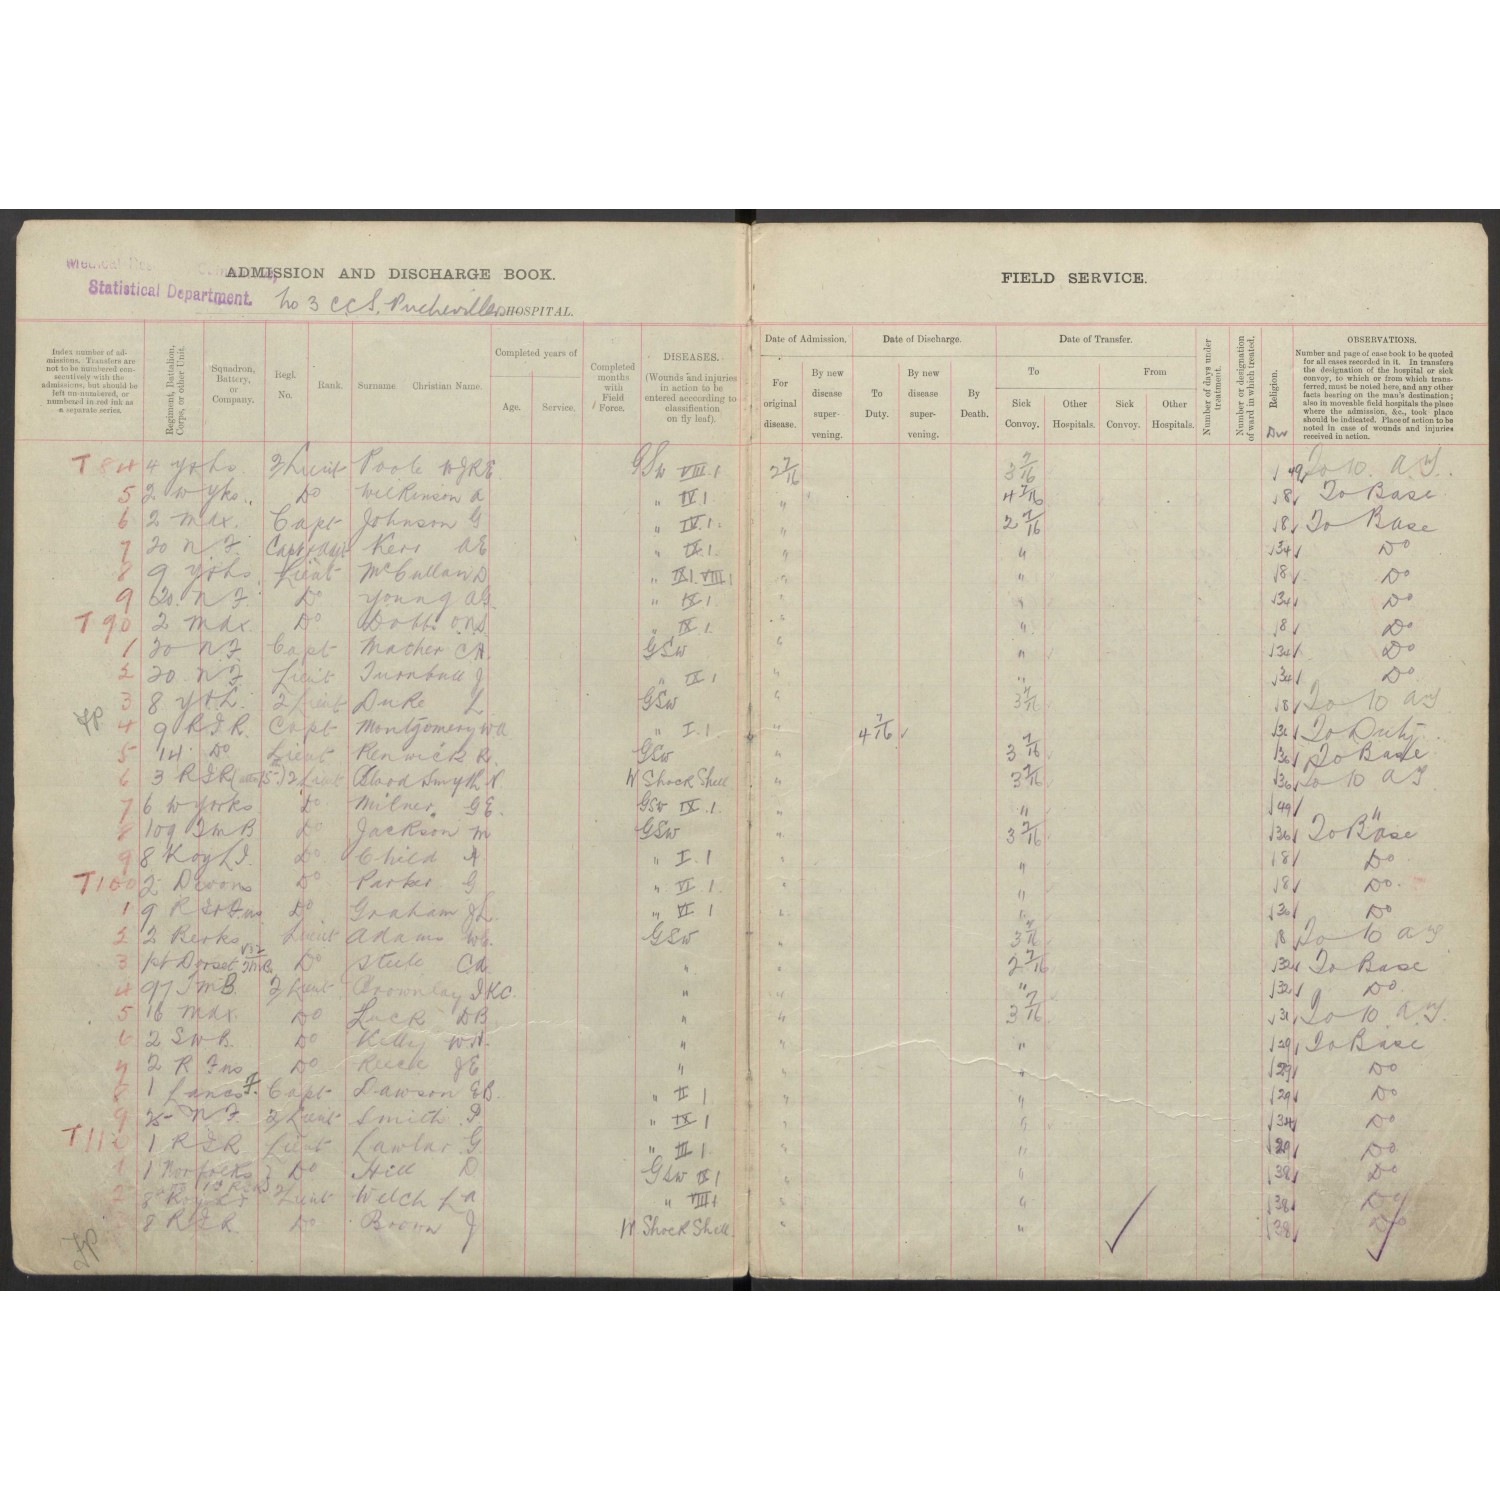 Statistical Department.
ADMISSION AND DISCHARGE BOOK.
No 3 CCS, Puchevillers HOSPITAL.
FIELD SERVICE.
Index number of admissions. Transfers are not to be numbered consecutively with the admissions, but should be left un-numbered, or numbered in red ink as a separate series.
Regiment, Battalion, Corps, or other Unit.
Squadron, Battery, or Company.
Regtl. No.
Rank.
Surname Christian Name.
Completed years of
Age. Service.
Completed months with Field Force.
DISEASES.
(Wounds and injuries in action to be entered according to classification on fly leaf).
Date of Admission.
For original disease.
By new disease supervening.
Date of Discharge.
To Duty.
By new disease supervening.
By Death.
Date of Transfer.
To From
Sick Convoy. Other Hospitals. Sick Convoy. Other Hospitals.
Number of days under treatment.
Number or designation of ward in which treated.
Religion.
Div
OBSERVATIONS.
Number and page of case book to be quoted for all cases recorded in it. In transfers the designation of the hospital or sick convoy, to which or from which transferred, must be noted here, and any other facts bearing on the man's destination; also in moveable field hospitals the place where the admission, &c., took place should be indicated. Place of action to be noted in case of wounds and injuries received in action.
T 84 4 Yorks. 2 Lieut Poole WJRE GSW VIII.1 2 7/16 3 7/16 49 To 10. A.T.
5 2 W Yks. Do Wilkinson A " IV 1 " 4 7/16 8 To Base
6 2 Mdx. Capt Johnson G " IV.1. " 2 7/16 8 To Base
7 20 N.F. Capt & Adjt Kerr AE " IX.1 " " 34 Do
8 9 Yorks. Lieut McCullan D " IX1.VIII 1 " " 8 Do
9 20. N.F. Do Young AG " IX 1 " " 34 Do
T 90 2 Mdx Do Dobb " IX 1. " " 8 Do
1 20 N.F. Capt Mather CA. GSW " " 34 Do
2 20. N.F. Lieut Turnbull J " IX 1 " " 34 Do
3 8 Y & L. 2 Lieut Duke L GSW " 3 7/16 8 To 10 AT
4 9 R.I.R. Capt Montgomery WA " I.1 " 4 7/16 36 To Duty
5 14 Do Lieut Renwick R. GSW " 3 7/16 36 To Base
6 3 R.I.R. 2 Lieut Smyth W Shock Shell " 3 7/16 36 To 10 AT
7 6 W Yorks Do Milner. GE. GSW IX.1 " " 49 "
8 109 TMB Do Jackson M GSW " 3 7/16 36 To Base
9 8 Koyli. Do Child A " I.1 " " 8 Do
T100 2 Devons Do Parker G " VI 1. " " 8 Do.
1 9 R Ir Fus Do Graham JL. " VI 1 " " 36 Do
2 2 Berks Lieut Adams GSW " 3 7/16 8 To 10 AT
3 1st Dorset Do Steele CA. " " 2 7/16 32 To Base
4 97 TMB. 2 Lieut IKC. " " " 32 Do.
5 16 Mdx. Do Luck DB. " " 3 7/16 31 To 10. A.T.
6 2 SWB. Do Kelly WH. " " " 29 To Base
7 2 R Fus Do JE " " " 29 Do
8 1 Lancs F. Capt Dawson EB. " II 1 " " 29 Do
9 25 N.F. 2 Lieut Smith P " IX 1 " " 34 Do
T110 1 RIR Lieut Lawlar G. " III 1. " " 29 Do
1 1 Norfolks Do Hill D GSW IX 1 " " 38 Do
2 8 Lieut Welch LA " VIII 1 " " 38 Do
8 R.I.R. Do Brown J W Shock Shell. " " 38 Do